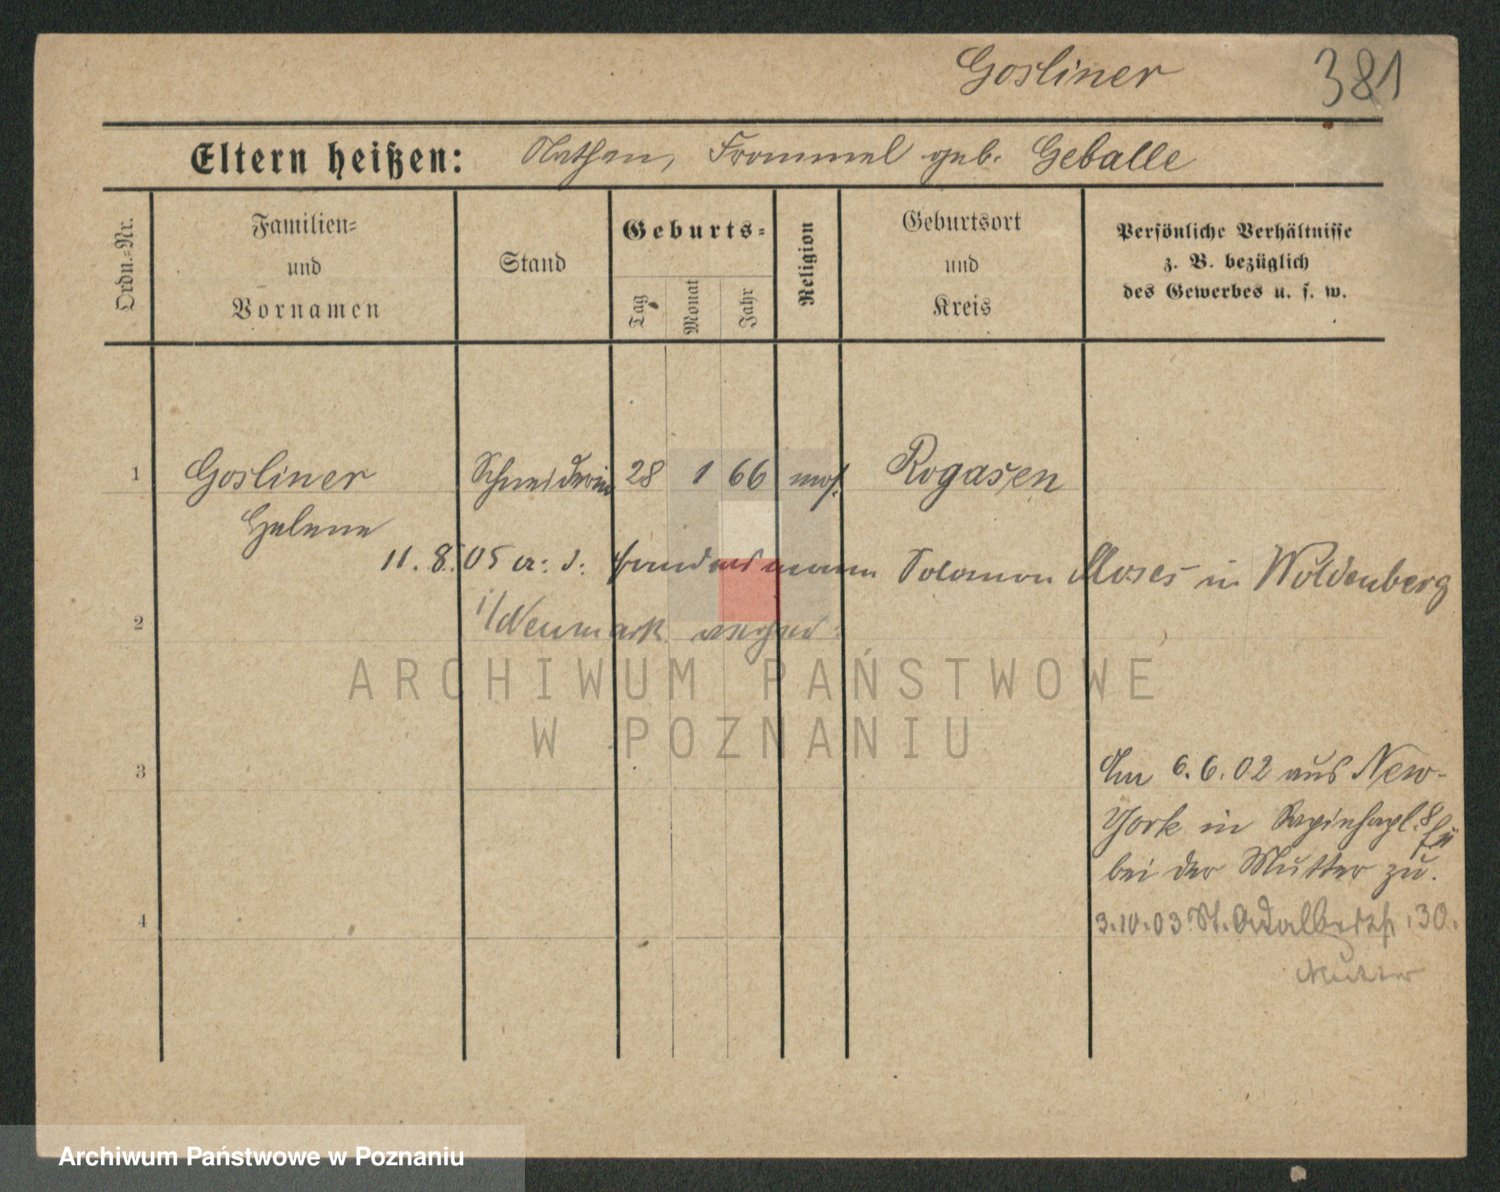 Gosliner 381
Eltern heißen: Nathan, Frommel geb. Geballe
Ordn.-Nr.
Familien-
und
Vornamen
Stand
Geburts-
Tag
Monat
Jahr
Religion
Geburtsort
und
Kreis
Persönliche Verhältnisse
z. B. bezüglich
des Gewerbes u. s. w.
1 Gosliner Schneiderin 28 1 66 mos. Rogasen
Helene
11. 8. 05 a. d. Handelsmann Salomon Moses in Woldenberg
2 i/Neumark verh.
ARCHIWUM PAŃSTWOWE
W POZNANIU
3 Am 6.6.02 aus New-
York in
bei der Mutter zu.
4 3.10.03 St. Adalbertstr. 30.
Mutter
Archiwum Państwowe w Poznaniu